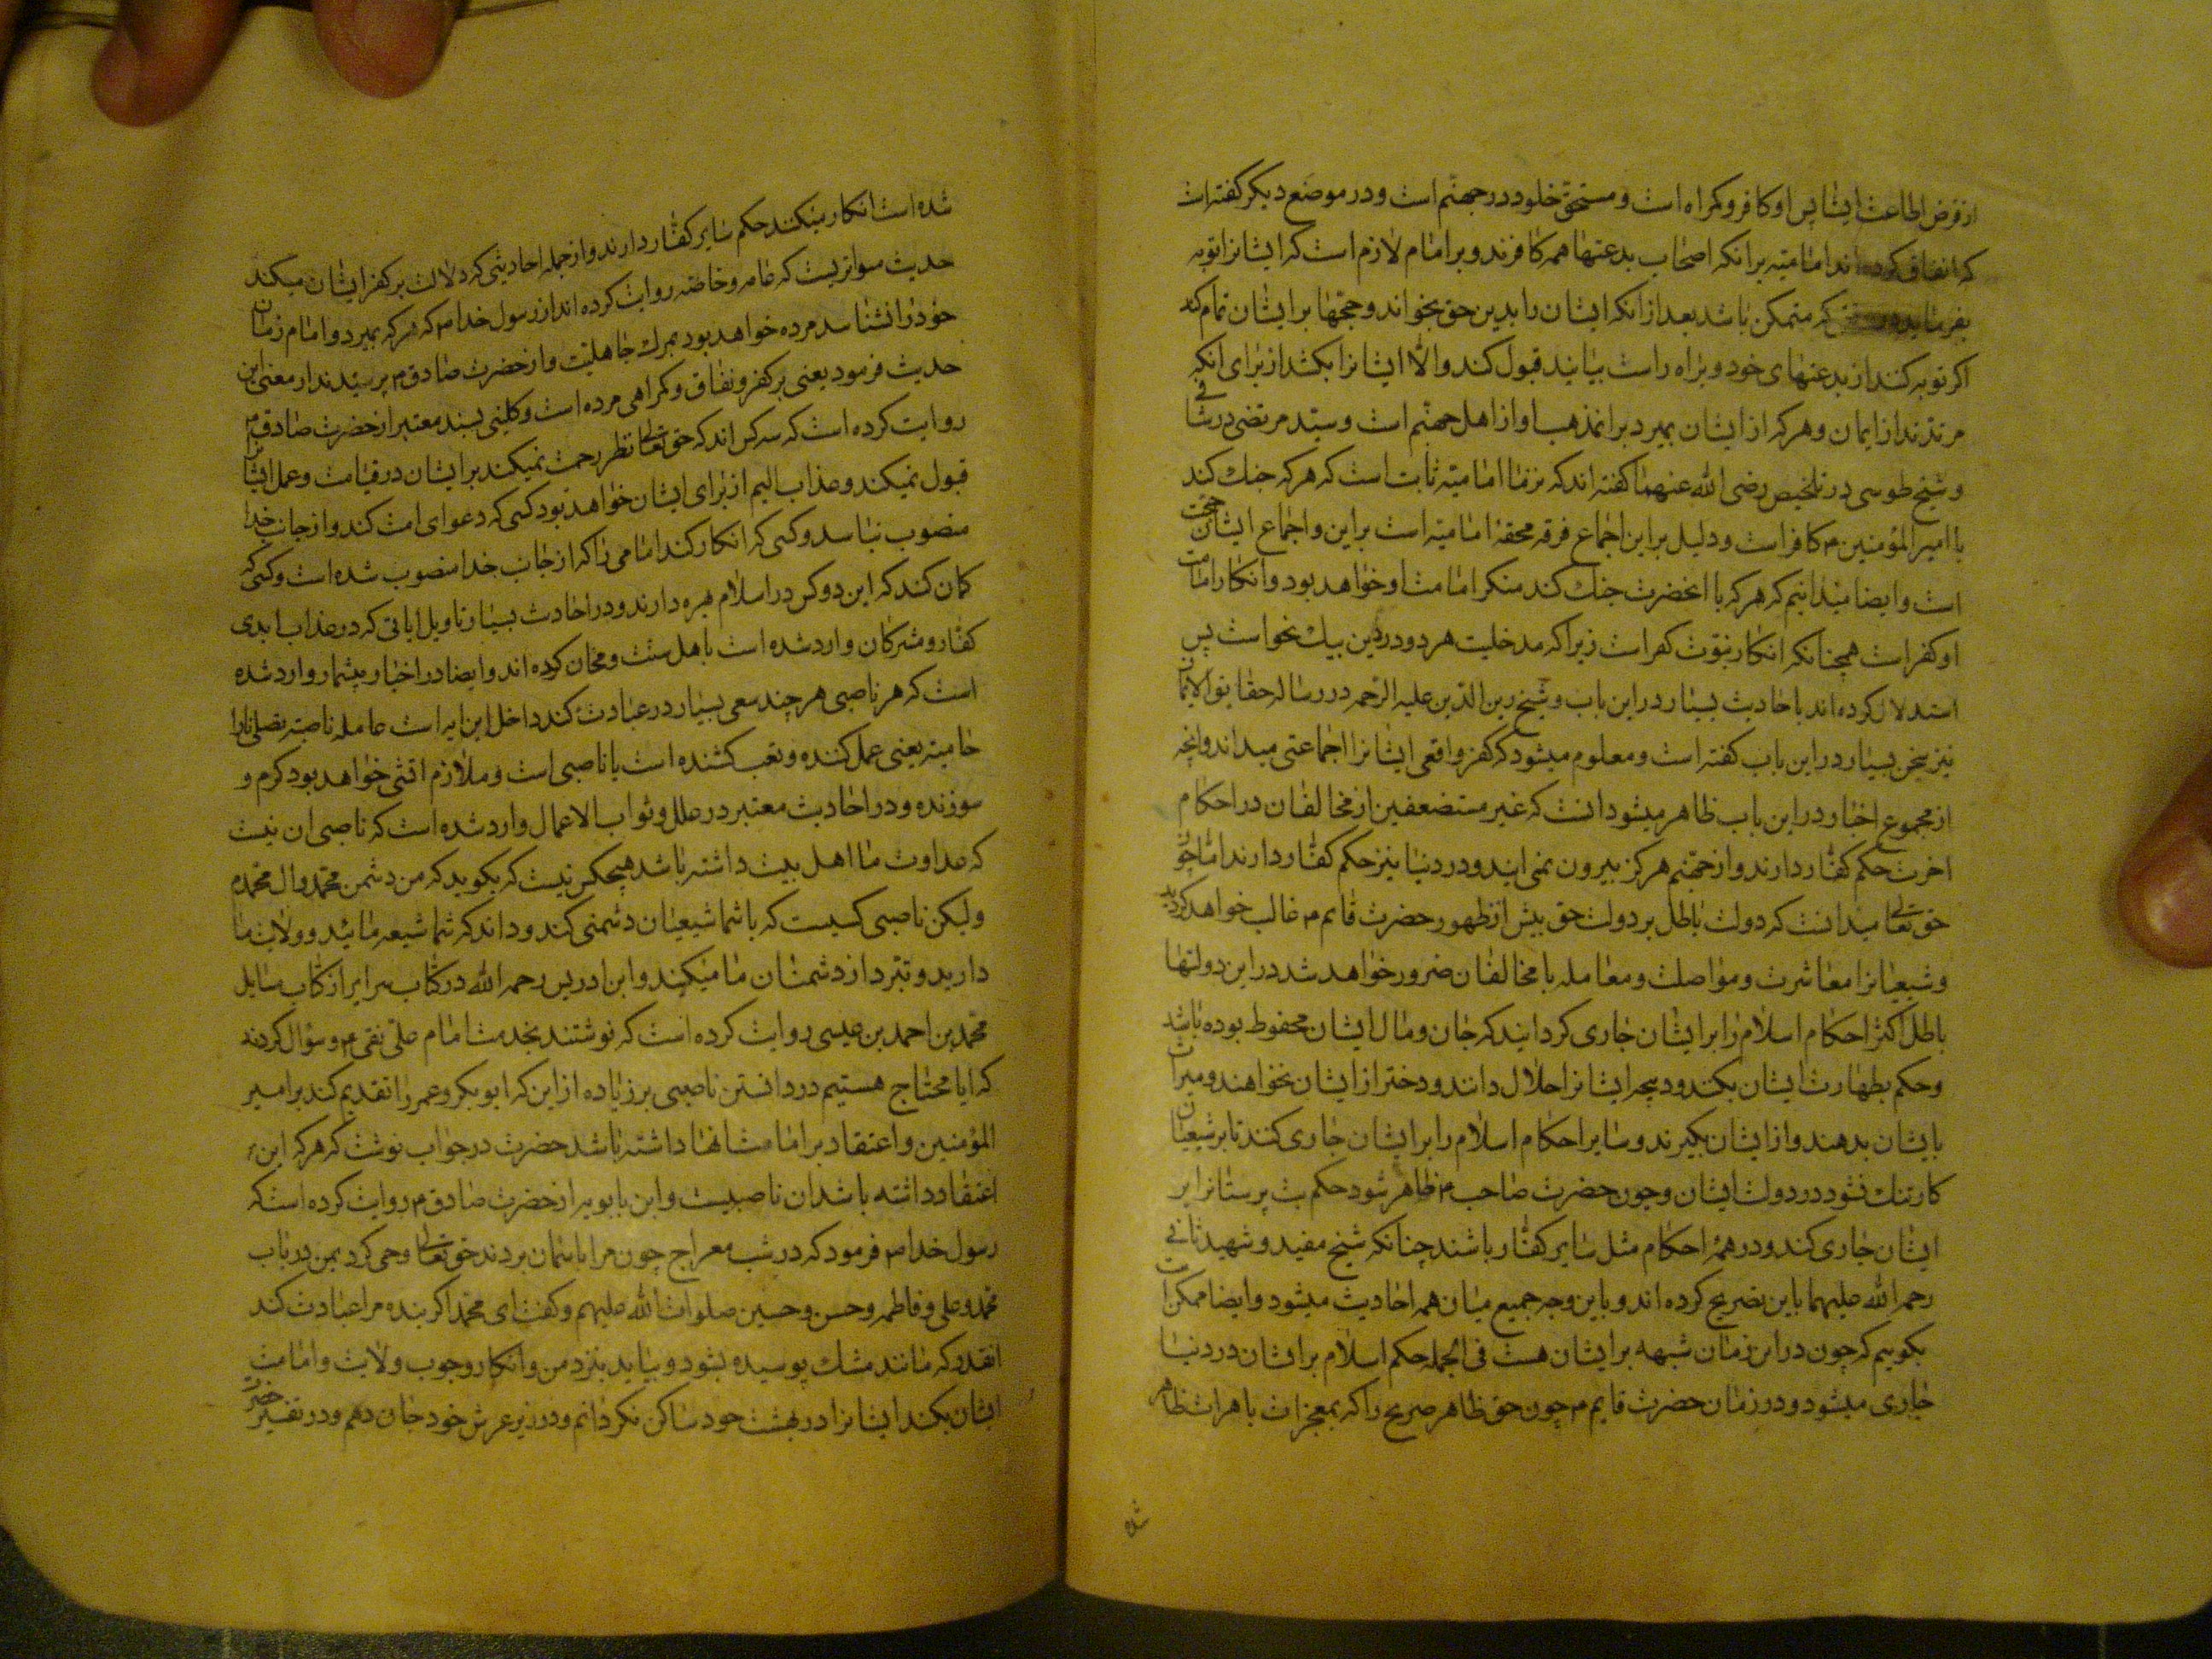 از فرض اطاعت ایشان پس او کافر و کمراه است و مستحق خلود در جهنم است و در موضع دیکر کفته است
که اتفاق کرده اند امامیّه بر انکه اصحاب بدعتها همه کافرند و بر امام لازم است که ایشانرا توبه
بفرماید در که متمکن باشد بعد از انکه ایشان را بدین حق بخواند و حجّتها بر ایشان تمام کند
اکر توبه کنند از بدعتهای خود و براه راست بیایند قبول کند و الّا ایشانرا بکشد از برای انکه
مرتدند از ایمان و هر که از ایشان بمیرد بر انمذهب او از اهل جهنم است و سیّد مرتضی در شافی
و شیخ طوسی در تلخیص رضی الله عنهما کفته اند که نزد ما امامیّه ثابت است که هر که جنك کند
با امیر المؤمنین ۴ کافر است و دلیل بر این اجماع فرقه محقهٔ امامیّه است بر این و اجماع ایشان حجّت
است و ایضا میدانیم که هر که با انحضرت جنك کند منکر امامت او خواهد بود و انکار امامت
او کفر است همچنانکه انکار نبوّت کفر است زیرا که مدخلیت هر دو در دین بیك نحو است پس
استدلال کرده اند باحادیث بسیار در این باب و شیخ زین الدّین علیه الرّحمه در رساله حقایق الایمان
نیز سخن بسیار در این باب کفته است و معلوم میشود که کفر واقعی ایشانرا اجماعتی میداند و انچه
از مجموع اخبار در این باب ظاهر میشود انست که غیر مستضعفین از مخالفان در احکام
اخرت حکم کفّار دارند و از جهنّم هرکز بیرون نمی ایند و در دنیا نیز حکم کفّار دارند امّا چون
حق تعالی میدانست که دولت باطل بر دولت حق پیش از ظهور حضرت قایم ۴ غالب خواهد کردید
و شیعیانرا معاشرت و مواصلت و معامله با مخالفان ضرور خواهد شد در این دولتها
باطل اکثر احکام اسلام را بر ایشان جاری کردانیند که جان و مال ایشان محفوظ بوده باشد
و حکم بطهارت ایشان بکند و ذبیحه ایشانرا حلال دانند و دختر از ایشان بخواهند و میراث
بایشان بدهند و از ایشان بکیرند و سایر احکام اسلام را بر ایشان جاری کنند تا بر شیعیان
کار تنك نشود در دولت ایشان و چون حضرت صاحب ۴ ظاهر شود حکم بت پرستانرا بر
ایشان جاری کند و در همهٔ احکام مثل سایر کفّار باشند چنانکه شیخ مفید و شهید ثانی
رحمه الله علیهما باین تصریح کرده اند و باین وجه جمیع میان همه احادیث میشود و ایضا ممکن است
بکوییم که چون در این زمان شبهه بر ایشان هست فی الجمله حکم اسلام بر ایشان در دنیا
جاری میشود و در زمان حضرت قایم ۴ چون حق ظاهر صریح را که بمعجزات باهرات ظاهر
شده
شده است انکار میکنند حکم سایر کفّار دارند و از جمله احادیثی که دلالت بر کفر ایشان میکند
حدیث متواتریست که عامه و خاصّه روایت کرده اند از رسول خدا ۴ که هر که بمیرد و امام زمان
خود را نشناسد مرده خواهد بود بمرك جاهلیّت و از حضرت صادق ۴ پرسیدند از معنی این
حدیث فرمود یعنی بر کفر و نفاق و کمراهی مرده است و کلینی بسند معتبر از حضرت صادق ۴
روایت کرده است که سه کس اند که حق تعالی نظر رحمت نمیکند بر ایشان در قیامت و عمل ایشانرا
قبول نمیکند و عذاب الیم از برای ایشان خواهد بود کسی که دعوای امت کند و از جانب خدا
منصوب نباسد و کسی که انکار کند امامی را که از جانب خدا منصوب شده است و کسی که
کمان کند که این دو کس در اسلام بهره دارند و در احادیث بسیار تاویل ایاتی که در عذاب ابدی
کفّار و مشرکان وارد شده است باهل سنّت و مخالفان کرده اند و ایضا در اخبار بیشمار وارد شده
است که هر ناصبی هر چند سعی بسیار در عبادت کند داخل این ایه است عاملة ناصبة تصلی نارا
حامیة یعنی عمل کننده و تعب کشنده است یا ناصبی است و ملازم اتشی خواهد بود کرم و
سوزنده و در احادیث معتبر در علل و ثواب الاعمال وارد شده است که ناصبی ان نیست
که عداوت ما اهل بیت داشته باشد هیچکس نیست که بکوید که من دشمن محمّد و ال محمّدم
و لیکن ناصبی کسیست که با شما شیعیان دشمنی کند و داند که شما شیعه مائید و ولایت ما
دارید و تبرّد از دشمنان ما میکنید و ابن ادریس رحمه الله در کتاب سرایر از کتاب مسایل
محمّد بن احمد بن عیسی روایت کرده است که نوشتند بخدمت امام علی نقی ۴ و سؤال کردند
که ایا محتاج هستیم در دانستن ناصبی بر زیاده از این که ابوبکر و عمر را تقدیم کند بر امیر
المؤمنین و اعتقاد بر امامت انها داشته باشد حضرت در جواب نوشت که هر که این
اعتقاد داشته باشد ان ناصبیست و ابن بابویه از حضرت صادق ۴ روایت کرده است که
رسول خدا ۴ فرمود که در شب معراج چون مرا باسمان بردند حق تعالی وحی کرد بمن در باب
محمّد و علی و فاطمه و حسن و حسین صلوات الله علیهم و کفت ای محمّد اکر بنده مرا عبادت کند
انقدر که مانند مشك پوسیده بشود و بیاید بنزد من و انکار وجوب ولایت و امامت
ایشان بکند ایشانرا در بهشت خود ساکن نکردانم و در زیر عرش خود جان دهم و در تفسیر حضرت